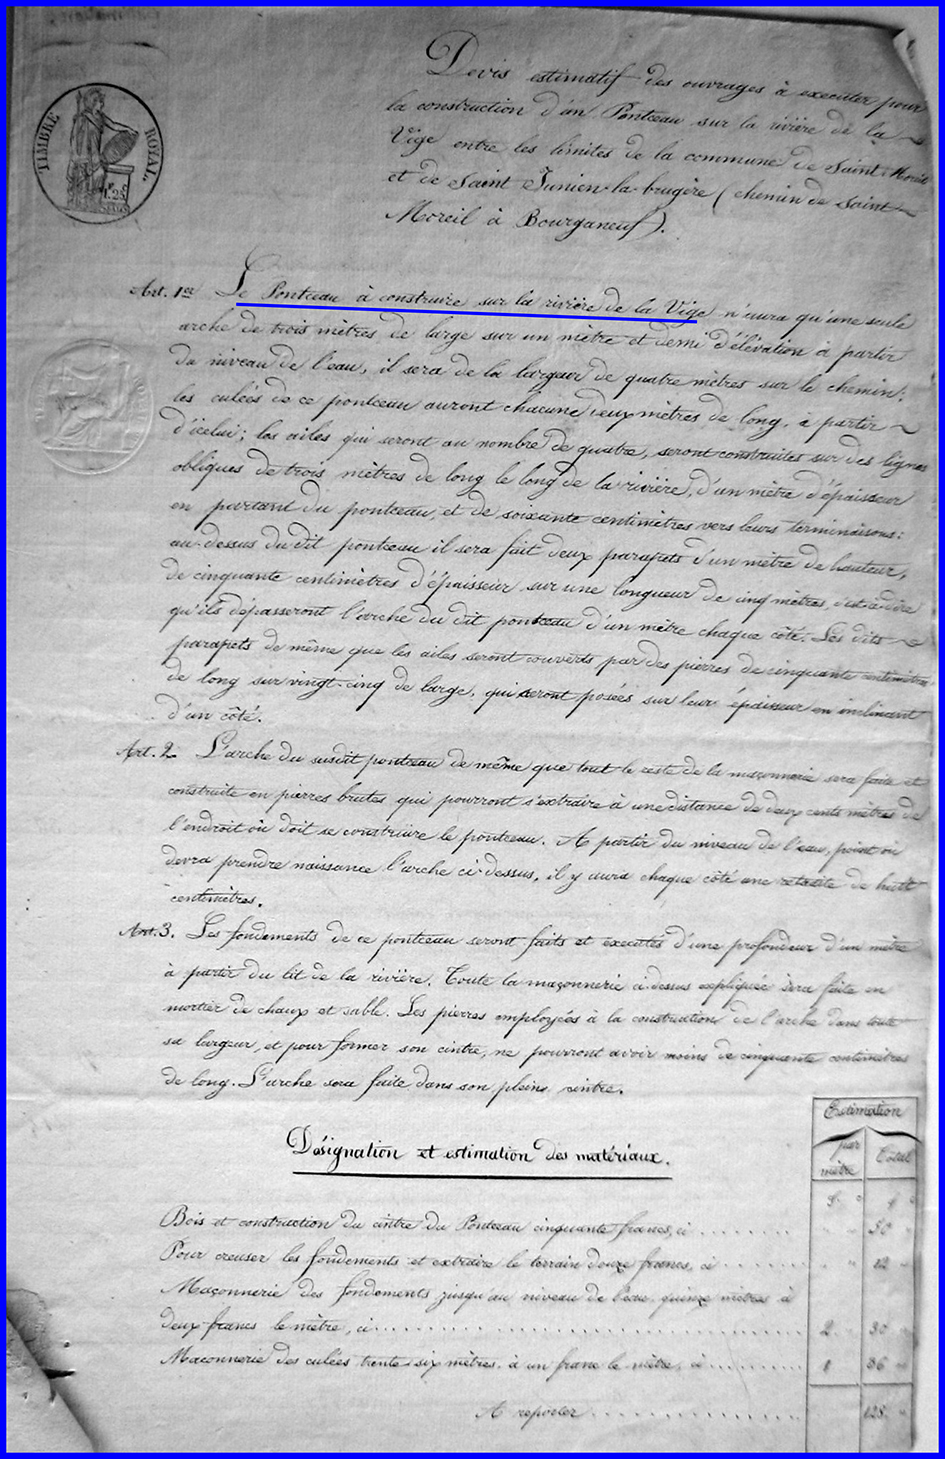 TIMBRE ROYAL.
1 F. 25 C.
Devis estimatif des ouvrages à executer pour
la construction d'un Pontceau sur la rivière de la
Vige entre les limites de la commune de Saint-Moreil
et de Saint Junien-la-brugère (chemin de Saint-
Moreil à Bourganeuf).
Art. 1er Le Pontceau à construire sur la rivière de la Vige n'aura qu'une seule
arche de trois mètres de large sur un mètre et demi d'élévation à partir
du niveau de l'eau, il sera de la largeur de quatre mètres sur le chemin;
les culées de ce pontceau auront chacune deux mètres de long, à partir
d'icelui; les ailes qui seront au nombre de quatre, seront construites sur des lignes
obliques de trois mètres de long le long de la rivière, d'un mètre d'épaisseur
en partant du pontceau, et de soixante centimètres vers leurs terminaisons:
au-dessus du dit pontceau il sera fait deux parapets d'un mètre de hauteur,
de cinquante centimètres d'épaisseur, sur une longueur de cinq mètres, c'est-à-dire
qu'ils dépasseront l'arche du dit pontceau d'un mètre chaque côté. Les dits
parapets de même que les ailes seront couverts par des pierres de cinquante centimètres
de long sur vingt-cinq de large, qui seront posées sur leur épaisseur en inclinant
d'un côté.
Art. 2 L'arche du susdit pontceau de même que tout le reste de la maçonnerie sera faite et
construite en pierres brutes qui pourront s'extraire à une distance de deux cents mètres de
l'endroit où doit se construire le pontceau. A partir du niveau de l'eau, point où
devra prendre naissance l'arche ci-dessus, il y aura chaque côté une retraite de huit
centimètres.
Art. 3. Les fondements de ce pontceau seront faits et executés d'une profondeur d'un mètre
à partir du lit de la rivière. Toute la maçonnerie ci-dessus expliquée sera faite en
mortier de chaux et sable. Les pierres employées à la construction de l'arche dans toute
sa largeur, et pour former son cintre, ne pourront avoir moins de cinquante centimètres
de long. L'arche sera faite dans son plein cintre.
Estimation
par mètre Total
Désignation et estimation des matériaux.
Bois et construction du cintre du Pontceau cinquante francs, ci ........ 50
Pour creuser les fondements et extraire le terrain douze francs, ci ........ 12
Maçonnerie des fondements jusqu'au niveau de l'eau, quinze mètres à
deux francs le mètre, ci ........ 2 30
Maconnerie des culées trente six mètres à un franc le mètre, ci ........ 1 36
A reporter ........ 128